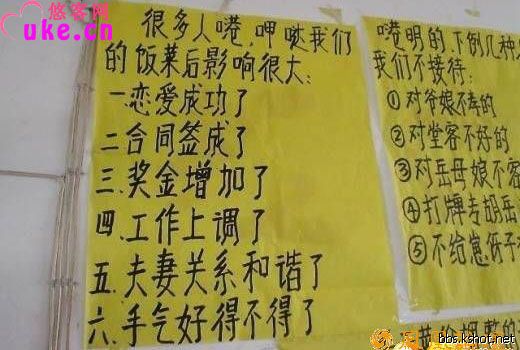 悠客网
uke.cn
很多人嗒,呷哒我们
的饭菜后影响很大:
一.恋爱成功了
二.合同签成了
三.奖金增加了
四.工作上调了
五.夫妻关系和谐了
六.手气好得不得了
明的,下例几种
我们不接待:
①对爷娘不孝的
②对堂客不好的
③对岳母娘不客
④打牌专胡
⑤不给崽伢子
bbs.kshot.net